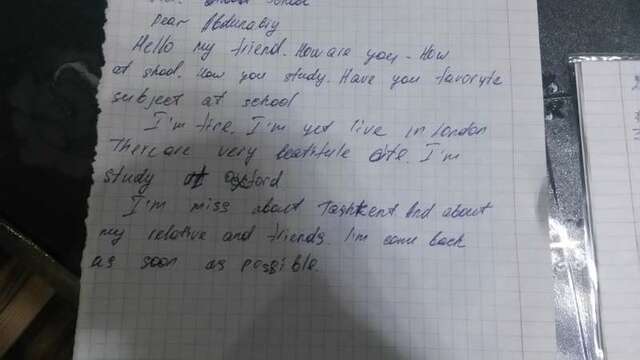 school
Dear Abdunabiy
Hello my friend. How are you. How
at shool. How you study. Have you favoryte
subject at school
I'm fine. I'm yet live in london
There are very beathfule cite. I'm
study at oxford
I'm miss about Tashkent And about
my relative and friends I'm come back
as soon as possible.